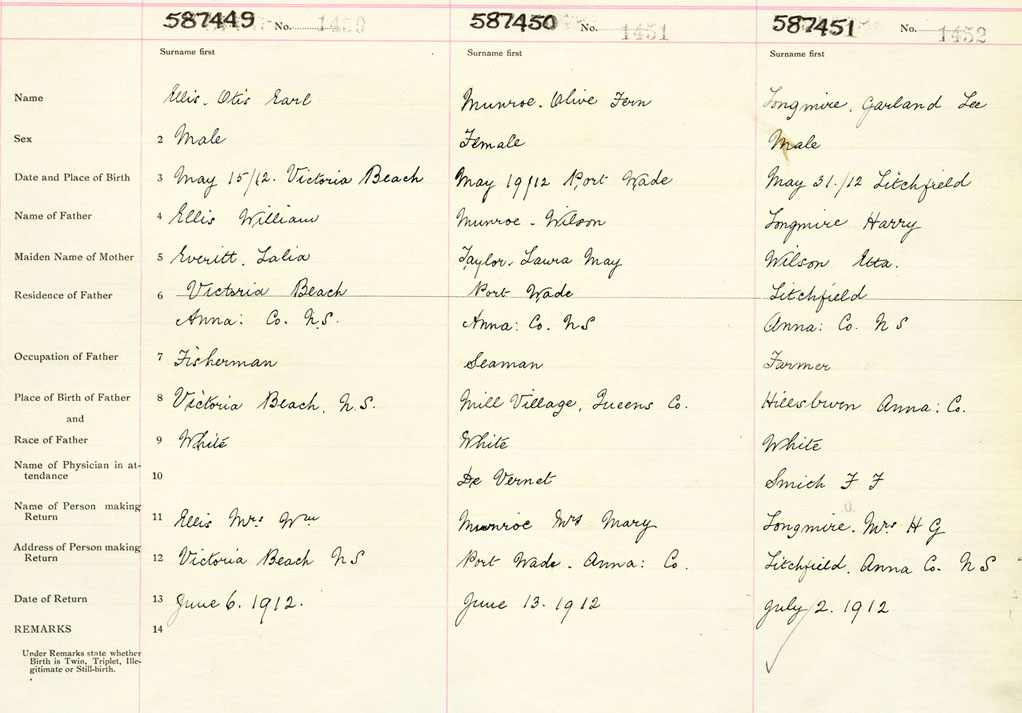 587449 No. 1450 587450 No. 1451 587451 No. 1452
Surname first Surname first Surname first
Name Ellis. Otis Earl Munroe. Olive Fern Longmire, Garland Lee
Sex 2 Male Female Male
Date and Place of Birth 3 May 15/12. Victoria Beach May 19/12 Port Wade May 31./12 Litchfield
Name of Father 4 Ellis William Munroe - Wilson Longmire Harry
Maiden Name of Mother 5 Everitt. Lalia Taylor. Laura May Wilson Etta.
Residence of Father 6 Victoria Beach Port Wade Litchfield
Anna: Co. N.S. Anna: Co. NS Anna: Co. N S
Occupation of Father 7 Fisherman Seaman Farmer
Place of Birth of Father 8 Victoria Beach, N.S. Mill Village, Queens Co. Hillsburn Anna: Co.
and
Race of Father 9 White White White
Name of Physician in at-
tendance 10 De Vernet Smich F F
Name of Person making
Return 11 Ellis Mrs Wm Munroe Mrs Mary Longmire. Mrs H G
Address of Person making
Return 12 Victoria Beach N S Port Wade. Anna: Co. Litchfield. Anna Co. N S
Date of Return 13 June 6. 1912. June 13. 1912 July 2. 1912
REMARKS 14
Under Remarks state whether
Birth is Twin, Triplet, Ille-
gitimate or Still-birth.